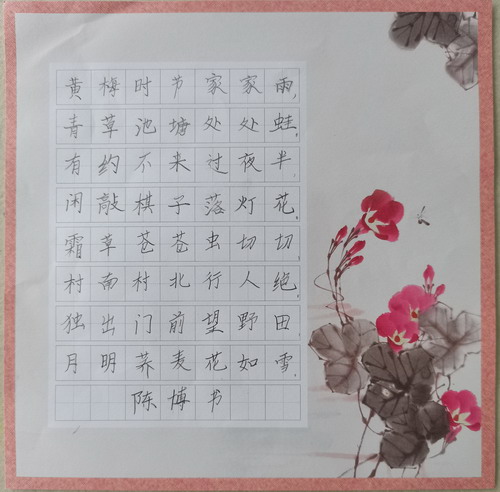 黄梅时节家家雨，
青草池塘处处蛙，
有约不来过夜半
闲敲棋子落灯花，
霜草苍苍虫切切，
村南村北行人绝，
独出门前望野田
月明荞麦花如雪，
陈博书